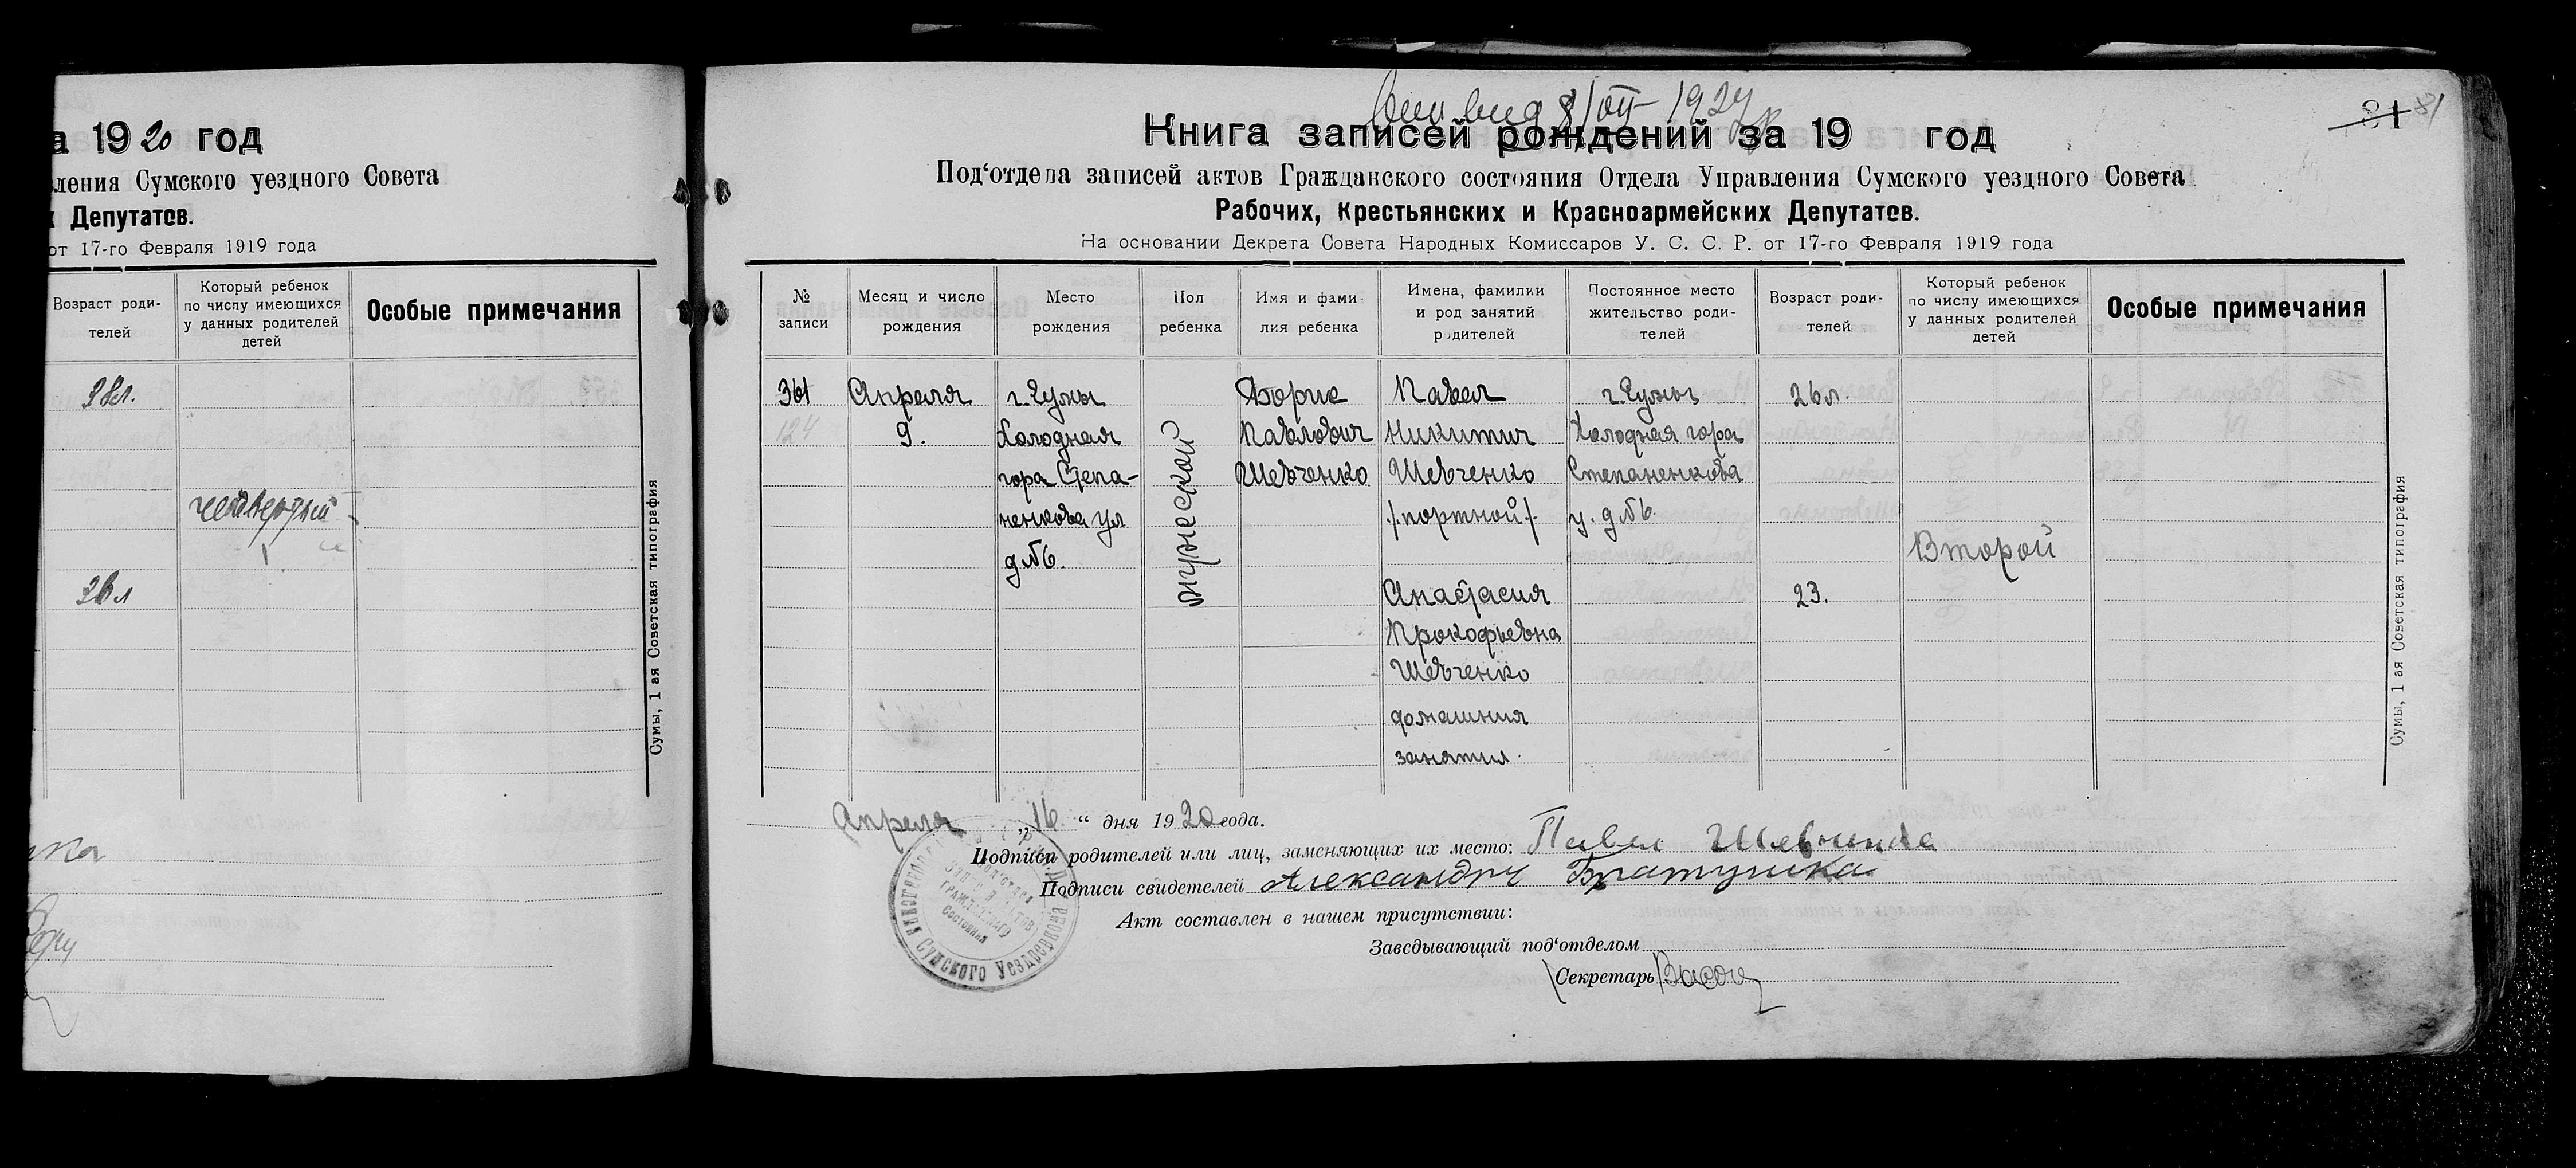 а 1920 год
ления Сумского уездного Совета
х Депутатов.
от 17-го Февраля 1919 года
Возраст роди-
телей
Который ребенок
по числу имеющихся
у данных родителей
детей
Особые примечания
38л.
четвертый
36л
Сумы, 1 ая Советская типография
8/VII 1927
81 81
Книга записей рождений за 19 год
Под‘отдела записей актов Гражданского состояния Отдела Управления Сумского уездного Совета
Рабочих, Крестьянских и Красноармейских Депутатов.
На основании Декрета Совета Народных Комиссаров У. С. С. Р. от 17-го Февраля 1919 года
№
записи
Месяц и число
рождения
Место
рождения
Пол
ребенка
Имя и фами-
лия ребенка
Имена, фамилии
и род занятий
родителей
Постоянное место
жительство роди-
телей
Возраст роди-
телей
Который ребенок
по числу имеющихся
у данных родителей
детей
Особые примечания
361
124
Апреля
9.
г. Сумы
Холодная
гора Степа-
ненкова ул
д№6.
мужеской
Борис
Павлович
Шевченко
Павел
Никитич
Шевченко
/портной/.
Анастасия
Прокофьевна
Шевченко
домашния
занятия.
г. Сумы
Холодная гора
Степаненкова
у. д№6.
26л.
23.
Второй
Сумы, 1 ая Советская типография
Апреля „16“ дня 1920 года.
Подписи родителей или лиц, заменяющих их место: Павел Шевченко
Подписи свидетелей Александръ Братушка
Акт составлен в нашем присутствии:
Заведывающий под‘отделом
Секретарь
Сумского Уездревкома
Гражданского
Состояния